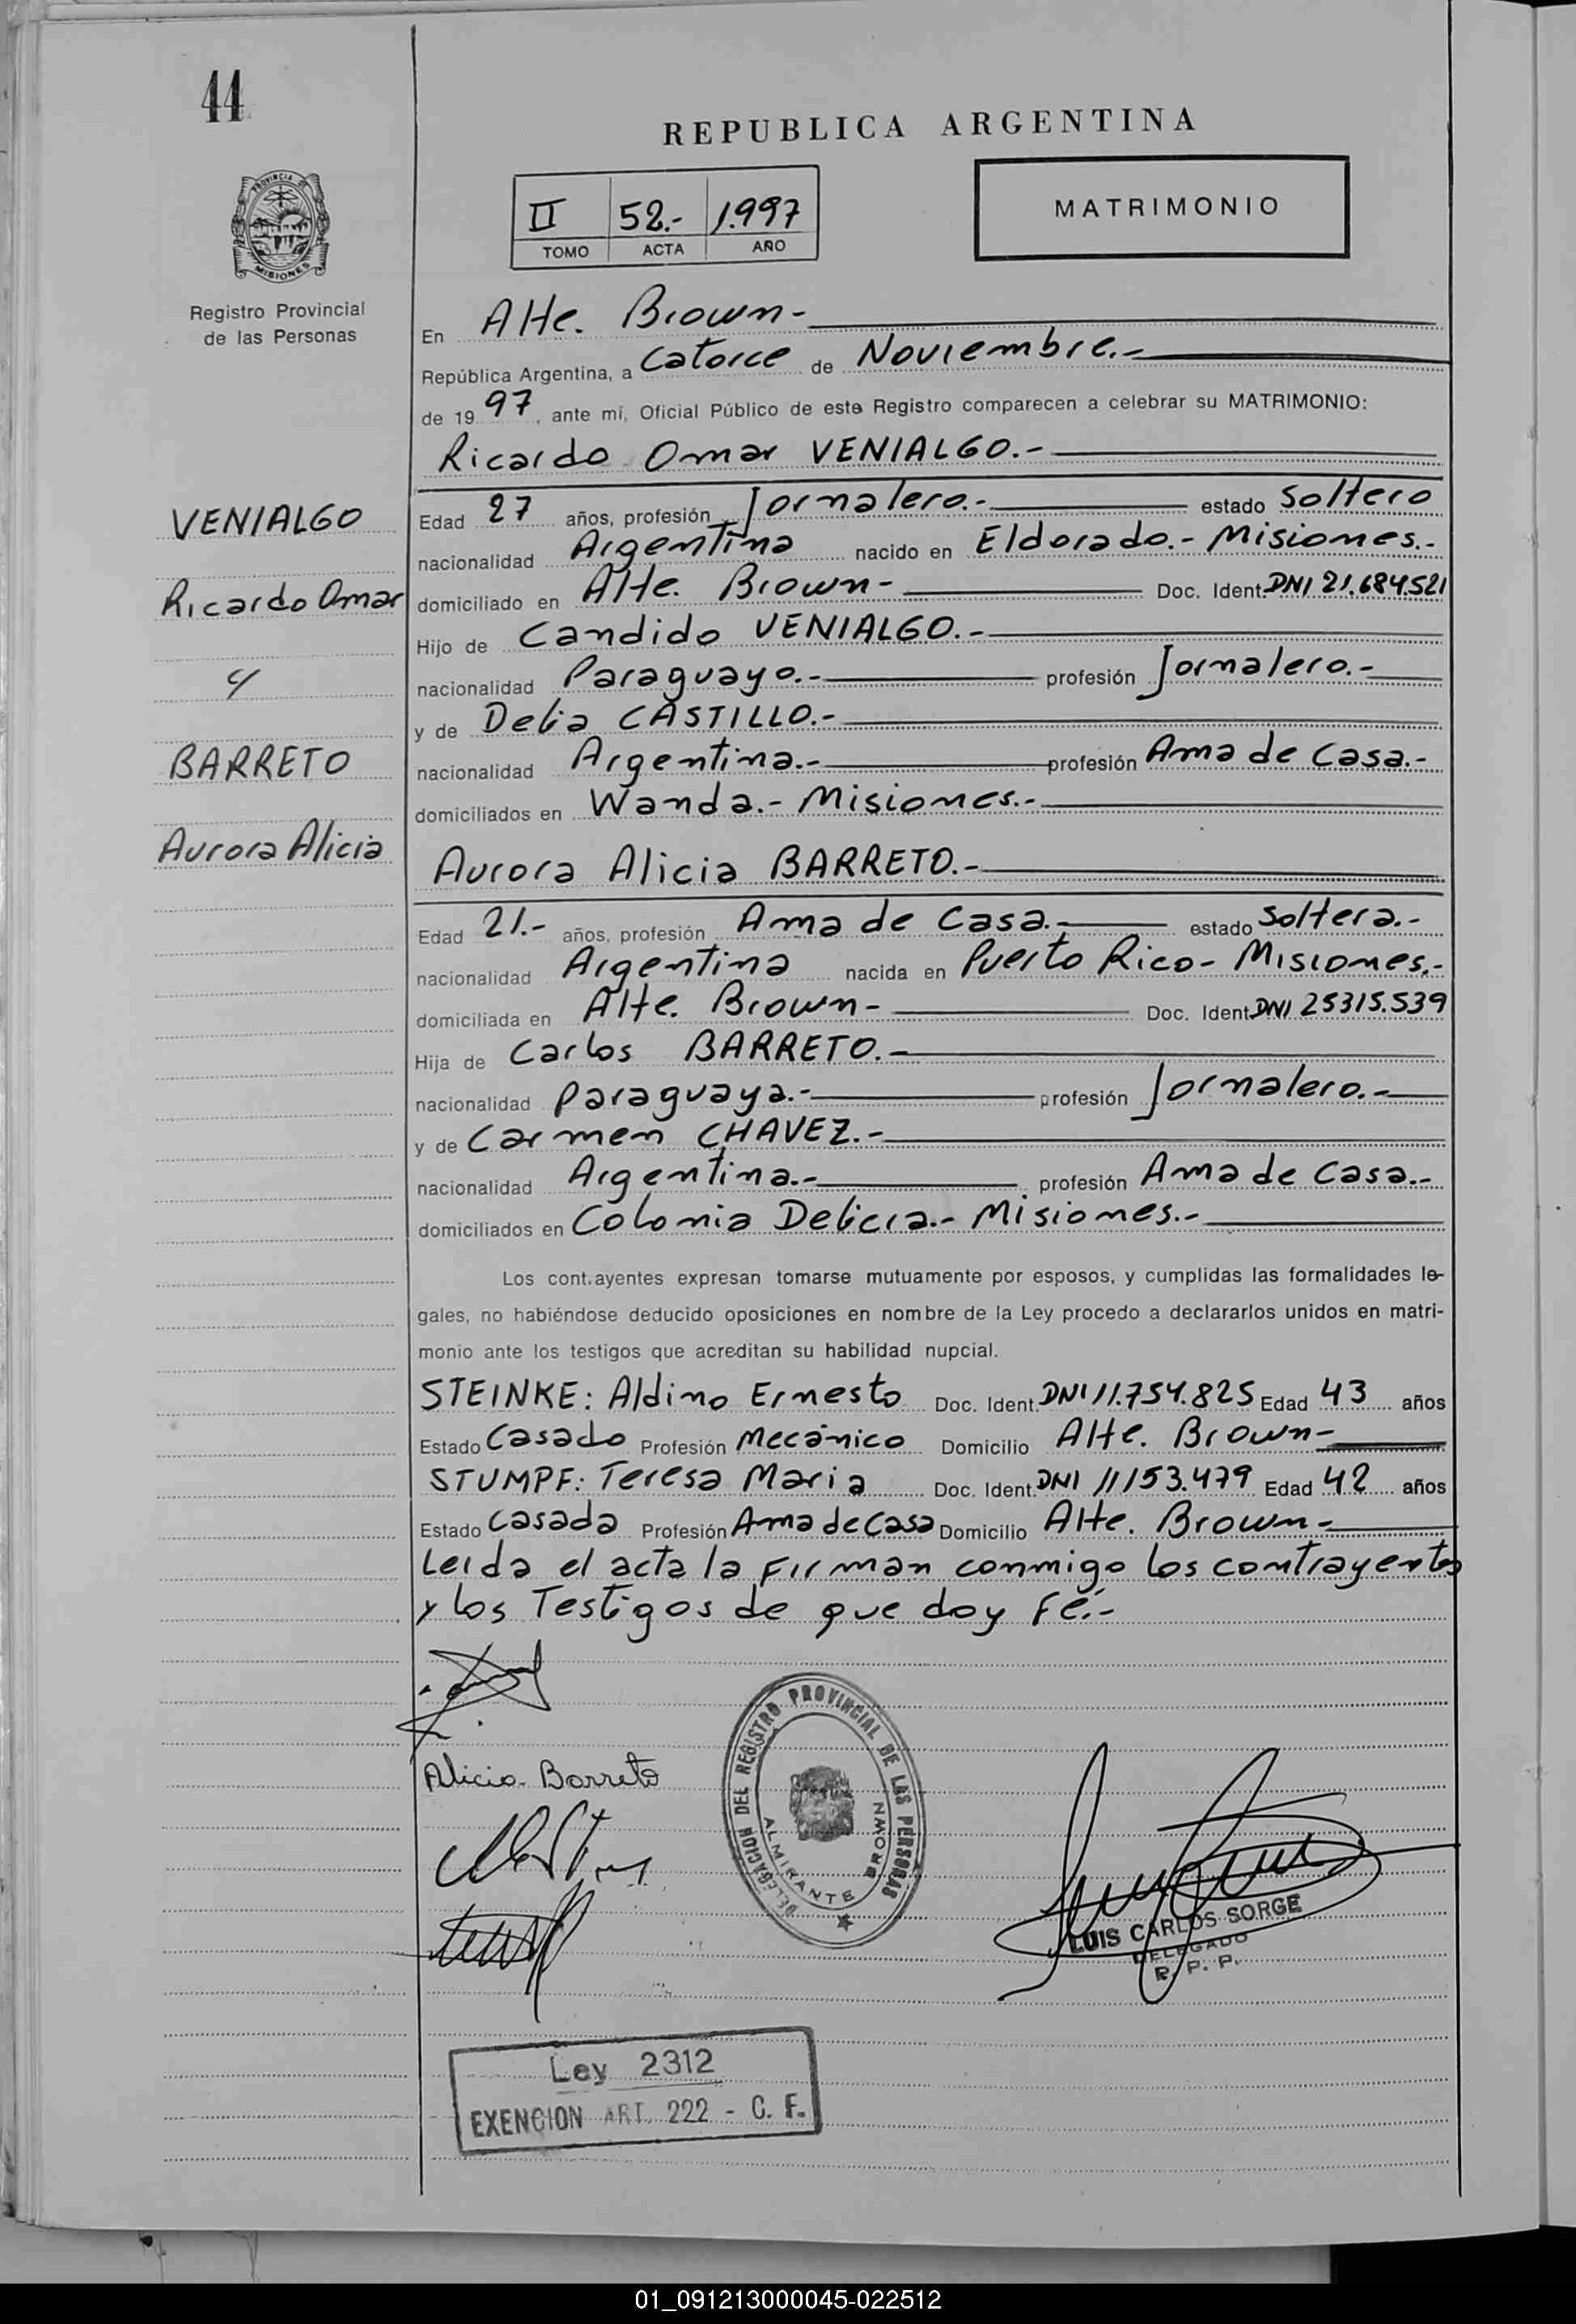 44
REPUBLICA ARGENTINA
PROVINCIA DE
MISIONES
Registro Provincial
de las Personas
II 52.- 1.997
TOMO ACTA AÑO
MATRIMONIO
En Alte. Brown-
República Argentina, a Catorce de Noviembre.-
de 19 97, ante mí, Oficial Público de este Registro comparecen a celebrar su MATRIMONIO:
Ricardo Omar VENIALGO.-
VENIALGO
Ricardo Omar
y
BARRETO
Aurora Alicia
Edad 27 años, profesión Jornalero.- estado Soltero
nacionalidad Argentina nacido en Eldorado.- Misiones.-
domiciliado en Alte. Brown- Doc. Ident. DNI 21.684.521
Hijo de Candido VENIALGO.-
nacionalidad Paraguayo.- profesión Jornalero.-
y de Delia CASTILLO.-
nacionalidad Argentina.- profesión Ama de Casa.-
domiciliados en Wanda.- Misiones.-
Aurora Alicia BARRETO.-
Edad 21.- años, profesión Ama de Casa.- estado Soltera.-
nacionalidad Argentina nacida en Puerto Rico- Misiones.-
domiciliada en Alte. Brown- Doc. Ident. DNI 25315.539
Hija de Carlos BARRETO.-
nacionalidad Paraguaya.- profesión Jornalero.-
y de Carmen CHAVEZ.-
nacionalidad Argentina.- profesión Ama de Casa.-
domiciliados en Colonia Delicia.- Misiones.-
Los contrayentes expresan tomarse mutuamente por esposos, y cumplidas las formalidades le-
gales, no habiéndose deducido oposiciones en nombre de la Ley procedo a declararlos unidos en matri-
monio ante los testigos que acreditan su habilidad nupcial.
STEINKE: Aldino Ernesto Doc. Ident. DNI 11.754.825 Edad 43 años
Estado Casado Profesión Mecánico Domicilio Alte. Brown-
STUMPF: Teresa Maria Doc. Ident. DNI 11153.479 Edad 42 años
Estado Casada Profesión Ama de Casa Domicilio Alte. Brown-
Leida el acta la Firman conmigo los contrayentes
y los Testigos de que doy Fé.-
Alicia Barreto
DELEGACION DEL REGISTRO PROVINCIAL DE LAS PERSONAS
ALMIRANTE BROWN
LUIS CARLOS SORGE
DELEGADO
R. P. P.
Ley 2312
EXENCION ART. 222 - C. F.
01_091213000045-022512